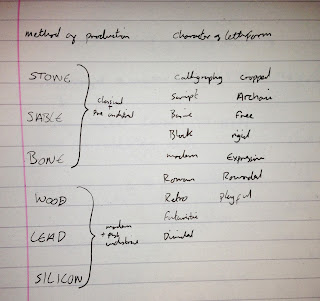 method of production character of letterform
STONE calligraphy cropped
classical + Pre industrial Script Archaic
SABLE Free
Block rigid
BONE modern Expressive
Roman Rounded
WOOD Retro playful
modern + post industrial Futuristic
LEAD Divided
SILICON